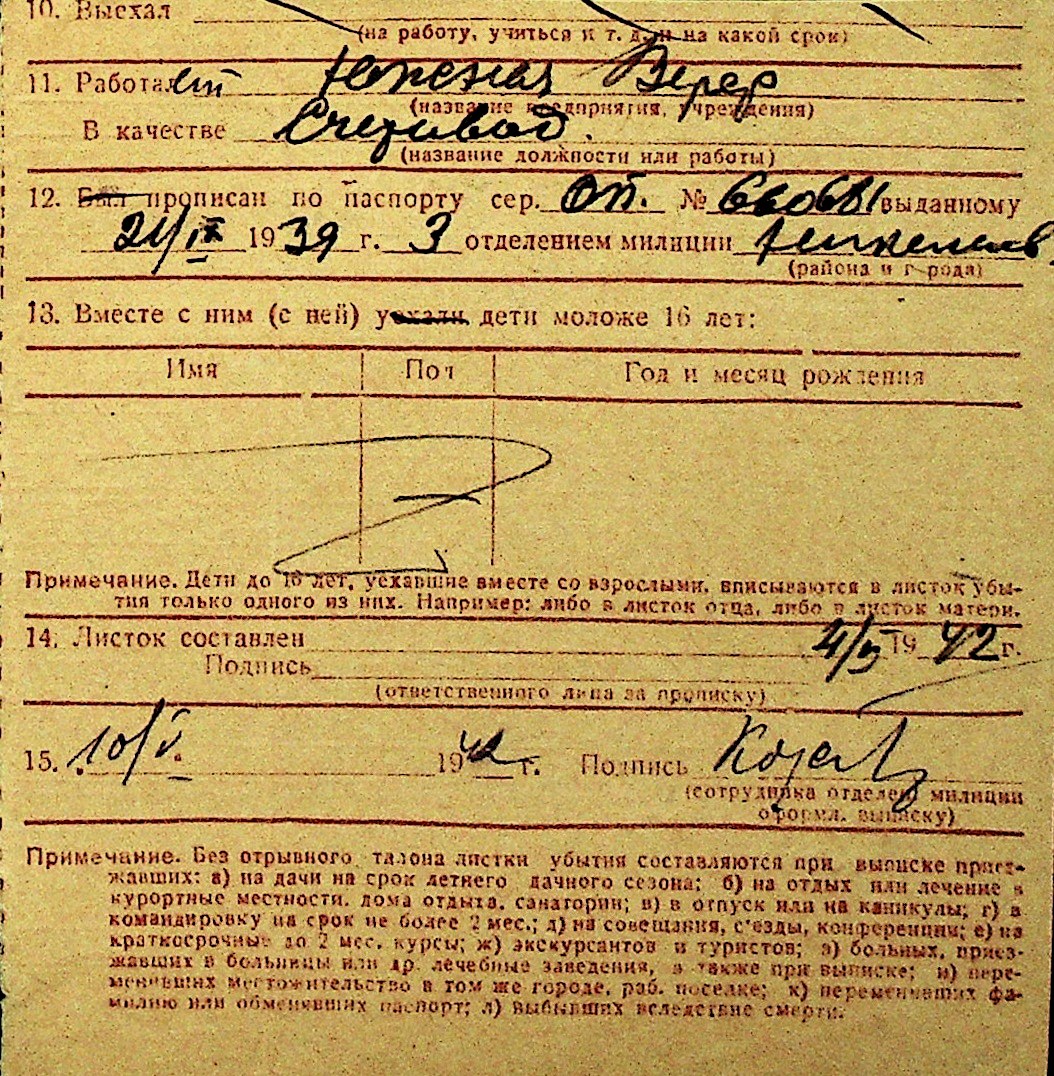 10. Выехал
(на работу, учиться и т. д. и на какой срок)
11. Работает Южная Верфь
(название предприятия, учреждения)
В качестве Счетовод.
(название должности или работы)
12. Был прописан по паспорту сер. ОП. № 660681 выданному
21/IX 1939 г. 3 отделением милиции
(района и города)
13. Вместе с ним (с ней) уехали дети моложе 16 лет:
Имя Пол Год и месяц рождения
Примечание. Дети до 16 лет, уехавшие вместе со взрослыми, вписываются в листок убы-
тия только одного из них. Например: либо в листок отца, либо в листок матери.
14. Листок составлен 4/V 1942 г.
Подпись
(ответственного лица за прописку)
15. 10/V 1942 г. Подпись
(сотрудника отделен. милиции
оформл. выписку)
Примечание. Без отрывного талона листки убытия составляются при выписке приез-
жавших: а) на дачи на срок летнего дачного сезона; б) на отдых или лечение в
курортные местности, дома отдыха, санатории; в) в отпуск или на каникулы; г) в
командировку на срок не более 2 мес.; д) на совещания, с'езды, конференции; е) на
краткосрочные до 2 мес. курсы; ж) экскурсантов и туристов; з) больных, приез-
жавших в больницы или др. лечебные заведения, а также при выписке; и) пере-
менивших местожительство в том же городе, раб. поселке; к) переменивших фа-
милию или обменявших паспорт; л) выбывших вследствие смерти.